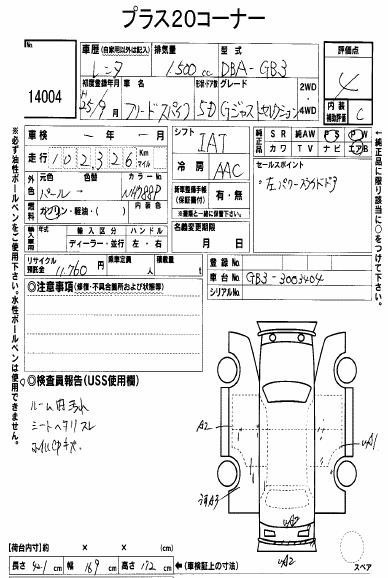 プラス20コーナー
No.
14004
車歴 (自家用以外は記入)
排気量
型式
評価点
レンタ
1500 cc
DBA-GB3
4
初度登録年月
車名
形状・ドア数
グレード
2WD
・
4WD
H 25/9月
フリードスパイク
5D
Gジャストセレクション
内装補助評価
C
車検 ー 年 ー 月
シフト
IAT
純正品
SR
純AW
PS
PW
カワ
TV
ナビ
エアB
走行 102,326 Km マイル
冷房
AAC
セールスポイント
左パワースライドドア
外色
元色
色替
カラーNo.
パール
NH788P
燃料
ガソリン・軽油・( )
内装色
新車整備手帳(保証書付)
有・無
※書類と一緒に保管下さい
輸入車
年式
輸入区分
ハンドル
ディーラー・並行
左・右
名義変更期限
月 日
リサイクル預託金
11,760 円
乗車定員
人
積載量
t
登録No.
車台No.
GB3-3003404
シリアルNo.
◎注意事項(修復・不具合箇所および状態等)
◎検査員報告(USS使用欄)
ルーム内汚れ
シートヘタリスレ
A2
A1
A3
A2
A2
【荷台内寸】約 × × (cm)
長さ 421 cm 幅 169 cm 高さ 172 cm ←(車検証上の寸法)
スペア
※必ず油性ボールペンをご使用下さい。水性ボールペンは使用できません。
↑純正品に限り該当に○をつけて下さい。